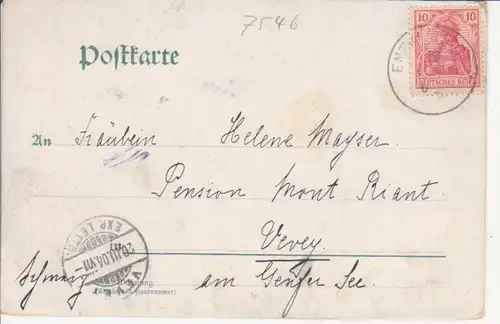 7546
Postkarte
10 10
DEUTSCHES REICH
An Fräulein Helene Mayser.
Pension Mont Riant.
Vevey.
Schweiz am Genfer See.
20.II.04.VII
EXP. LETTR.
VEVEY